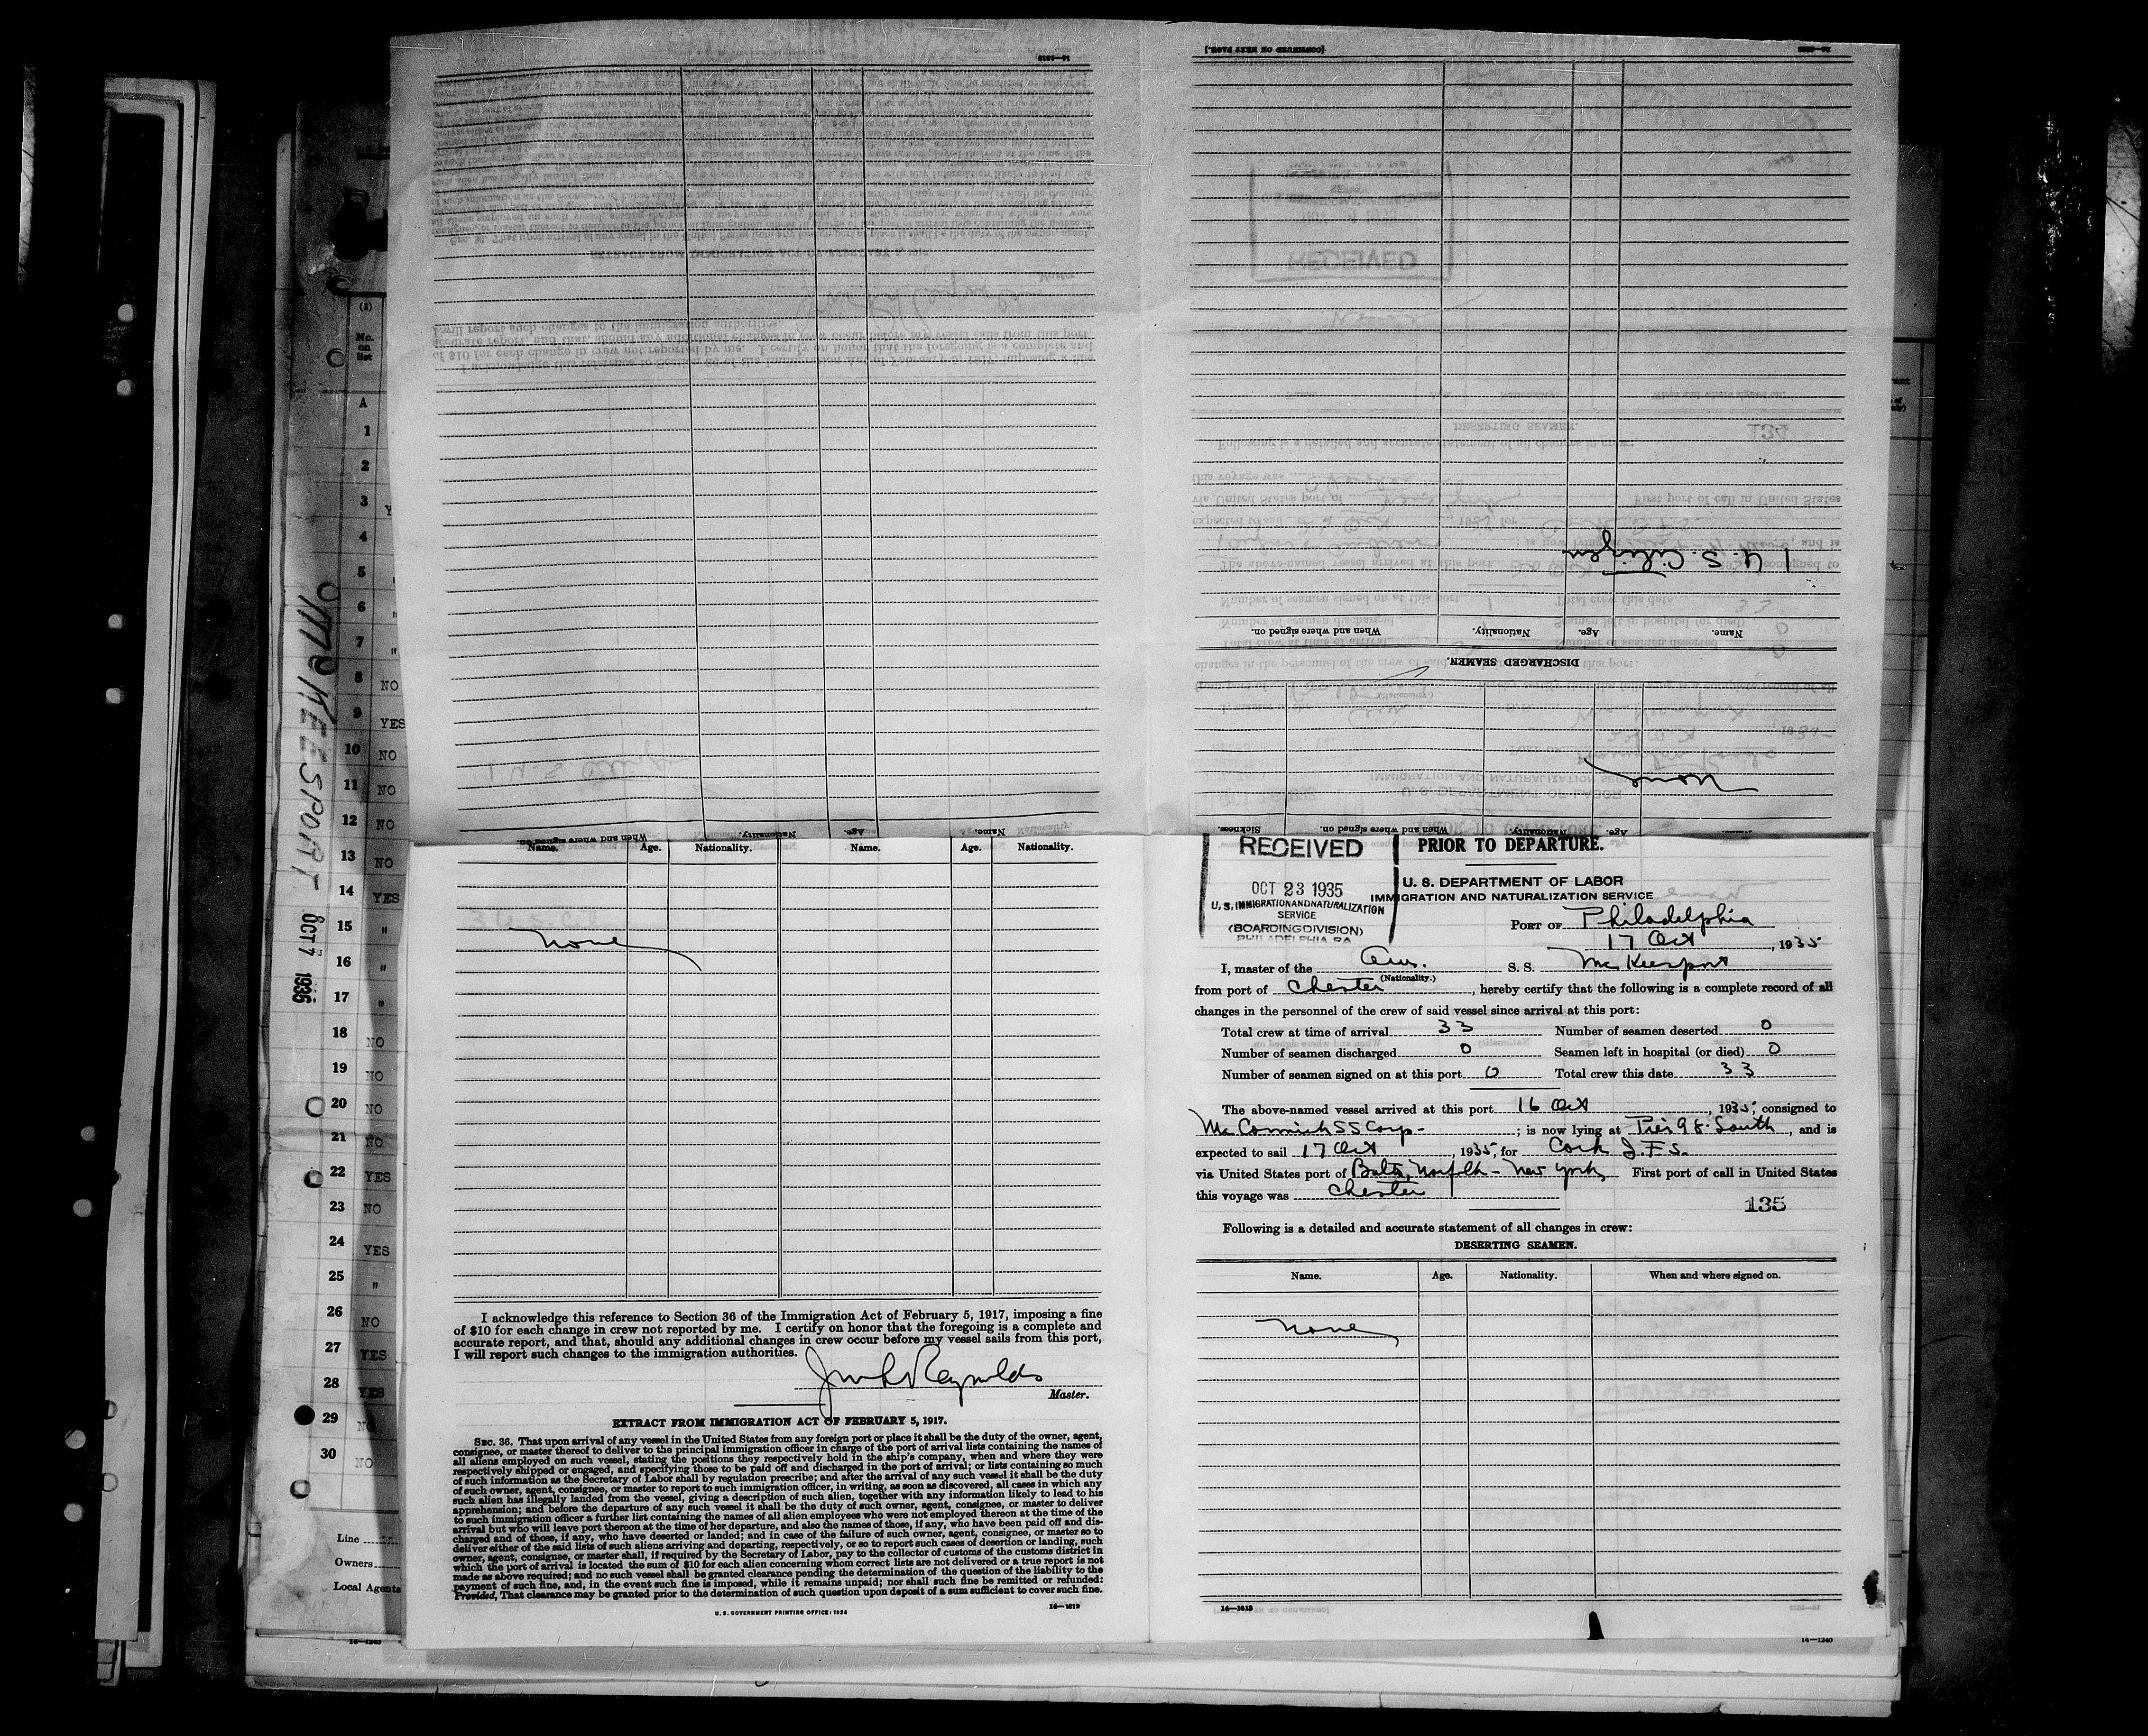 (2)
No.
on
list
A
1
2
3 Y
4
5 "
6 "
7 "
8 NO
9 YES
10 NO
11 NO
12 NO
13 NO
14 YES
15 "
16 "
17 "
18 NO
19 NO
20 NO
21 NO
22 YES
23 NO
24 YES
25 "
26 NO
27 YES
28 YES
29 NO
30 NO
Line
Owners
Local Agents
McKEESPORT OCT 7 1935
[CONTINUED ON NEXT PAGE.]
1 U. S. Citizen
Name. Age. Nationality. When and where signed on.
DISCHARGED SEAMEN.
None
Name. Age. Nationality. When and where signed on. Sickness.
Name. Age. Nationality. When and where signed on.
Name. Age. Nationality. Name. Age. Nationality.
none
I acknowledge this reference to Section 36 of the Immigration Act of February 5, 1917, imposing a fine
of $10 for each change in crew not reported by me. I certify on honor that the foregoing is a complete and
accurate report, and that, should any additional changes in crew occur before my vessel sails from this port,
I will report such changes to the immigration authorities.
Reynolds
Master.
EXTRACT FROM IMMIGRATION ACT OF FEBRUARY 5, 1917.
SEC. 36. That upon arrival of any vessel in the United States from any foreign port or place it shall be the duty of the owner, agent,
consignee, or master thereof to deliver to the principal immigration officer in charge of the port of arrival lists containing the names of
all aliens employed on such vessel, stating the positions they respectively hold in the ship's company, when and where they were
respectively shipped or engaged, and specifying those to be paid off and discharged in the port of arrival; or lists containing so much
of such information as the Secretary of Labor shall by regulation prescribe; and after the arrival of any such vessel it shall be the duty
of such owner, agent, consignee, or master to report to such immigration officer, in writing, as soon as discovered, all cases in which any
such alien has illegally landed from the vessel, giving a description of such alien, together with any information likely to lead to his
apprehension; and before the departure of any such vessel it shall be the duty of such owner, agent, consignee, or master to deliver
to such immigration officer a further list containing the names of all alien employees who were not employed thereon at the time of the
arrival but who will leave port thereon at the time of her departure, and also the names of those, if any, who have been paid off and dis-
charged and of those, if any, who have deserted or landed; and in case of the failure of such owner, agent, consignee, or master so to
deliver either of the said lists of such aliens arriving and departing, respectively, or so to report such cases of desertion or landing, such
owner, agent, consignee, or master shall, if required by the Secretary of Labor, pay to the collector of customs of the customs district in
which the port of arrival is located the sum of $10 for each alien concerning whom correct lists are not delivered or a true report is not
made as above required; and no such vessel shall be granted clearance pending the determination of the question of the liability to the
payment of such fine, and, in the event such fine is imposed, while it remains unpaid; nor shall such fine be remitted or refunded:
Provided, That clearance may be granted prior to the determination of such question upon deposit of a sum sufficient to cover such fine.
U. S. GOVERNMENT PRINTING OFFICE: 1934
RECEIVED
OCT 23 1935
U. S. IMMIGRATION AND NATURALIZATION
SERVICE
(BOARDING DIVISION)
PHILADELPHIA PA
PRIOR TO DEPARTURE.
U. S. DEPARTMENT OF LABOR
IMMIGRATION AND NATURALIZATION SERVICE
PORT OF Philadelphia
17 Oct, 1935
I, master of the Am. S. S. McKeesport
(Nationality.)
from port of Chester, hereby certify that the following is a complete record of all
changes in the personnel of the crew of said vessel since arrival at this port:
Total crew at time of arrival 33 Number of seamen deserted 0
Number of seamen discharged 0 Seamen left in hospital (or died) 0
Number of seamen signed on at this port 0 Total crew this date 33
The above-named vessel arrived at this port 16 Oct, 1935, consigned to
McCormick SS Corp-; is now lying at Pier 98 South, and is
expected to sail 17 Oct, 1935, for Cork I.F.S.
via United States port of Balto, Norfolk - New York First port of call in United States
this voyage was Chester
135
Following is a detailed and accurate statement of all changes in crew:
DESERTING SEAMEN.
Name. Age. Nationality. When and where signed on.
none
14—1240